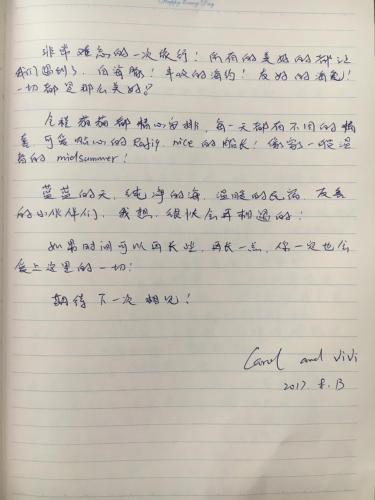 Happy Every Day
非常难忘的一次旅行！所有的美好的都让
我们遇到了，白海豚！丰收的海钓！友好的海龟！
一切都是那么美好？
全程猫猫都精心安排，每一天都有不同的惊
喜，可爱贴心的 nice的船长！像家一般温
馨的 midsummer！
蓝蓝的天，纯净的海，温暖的民宿，友善
的小伙伴们，我想，很快会再相遇的！
如果时间可以再长些，再长一点，你一定也会
爱上这里的一切！
期待下一次相见！
Carol and ViVi
2017. 8. 13